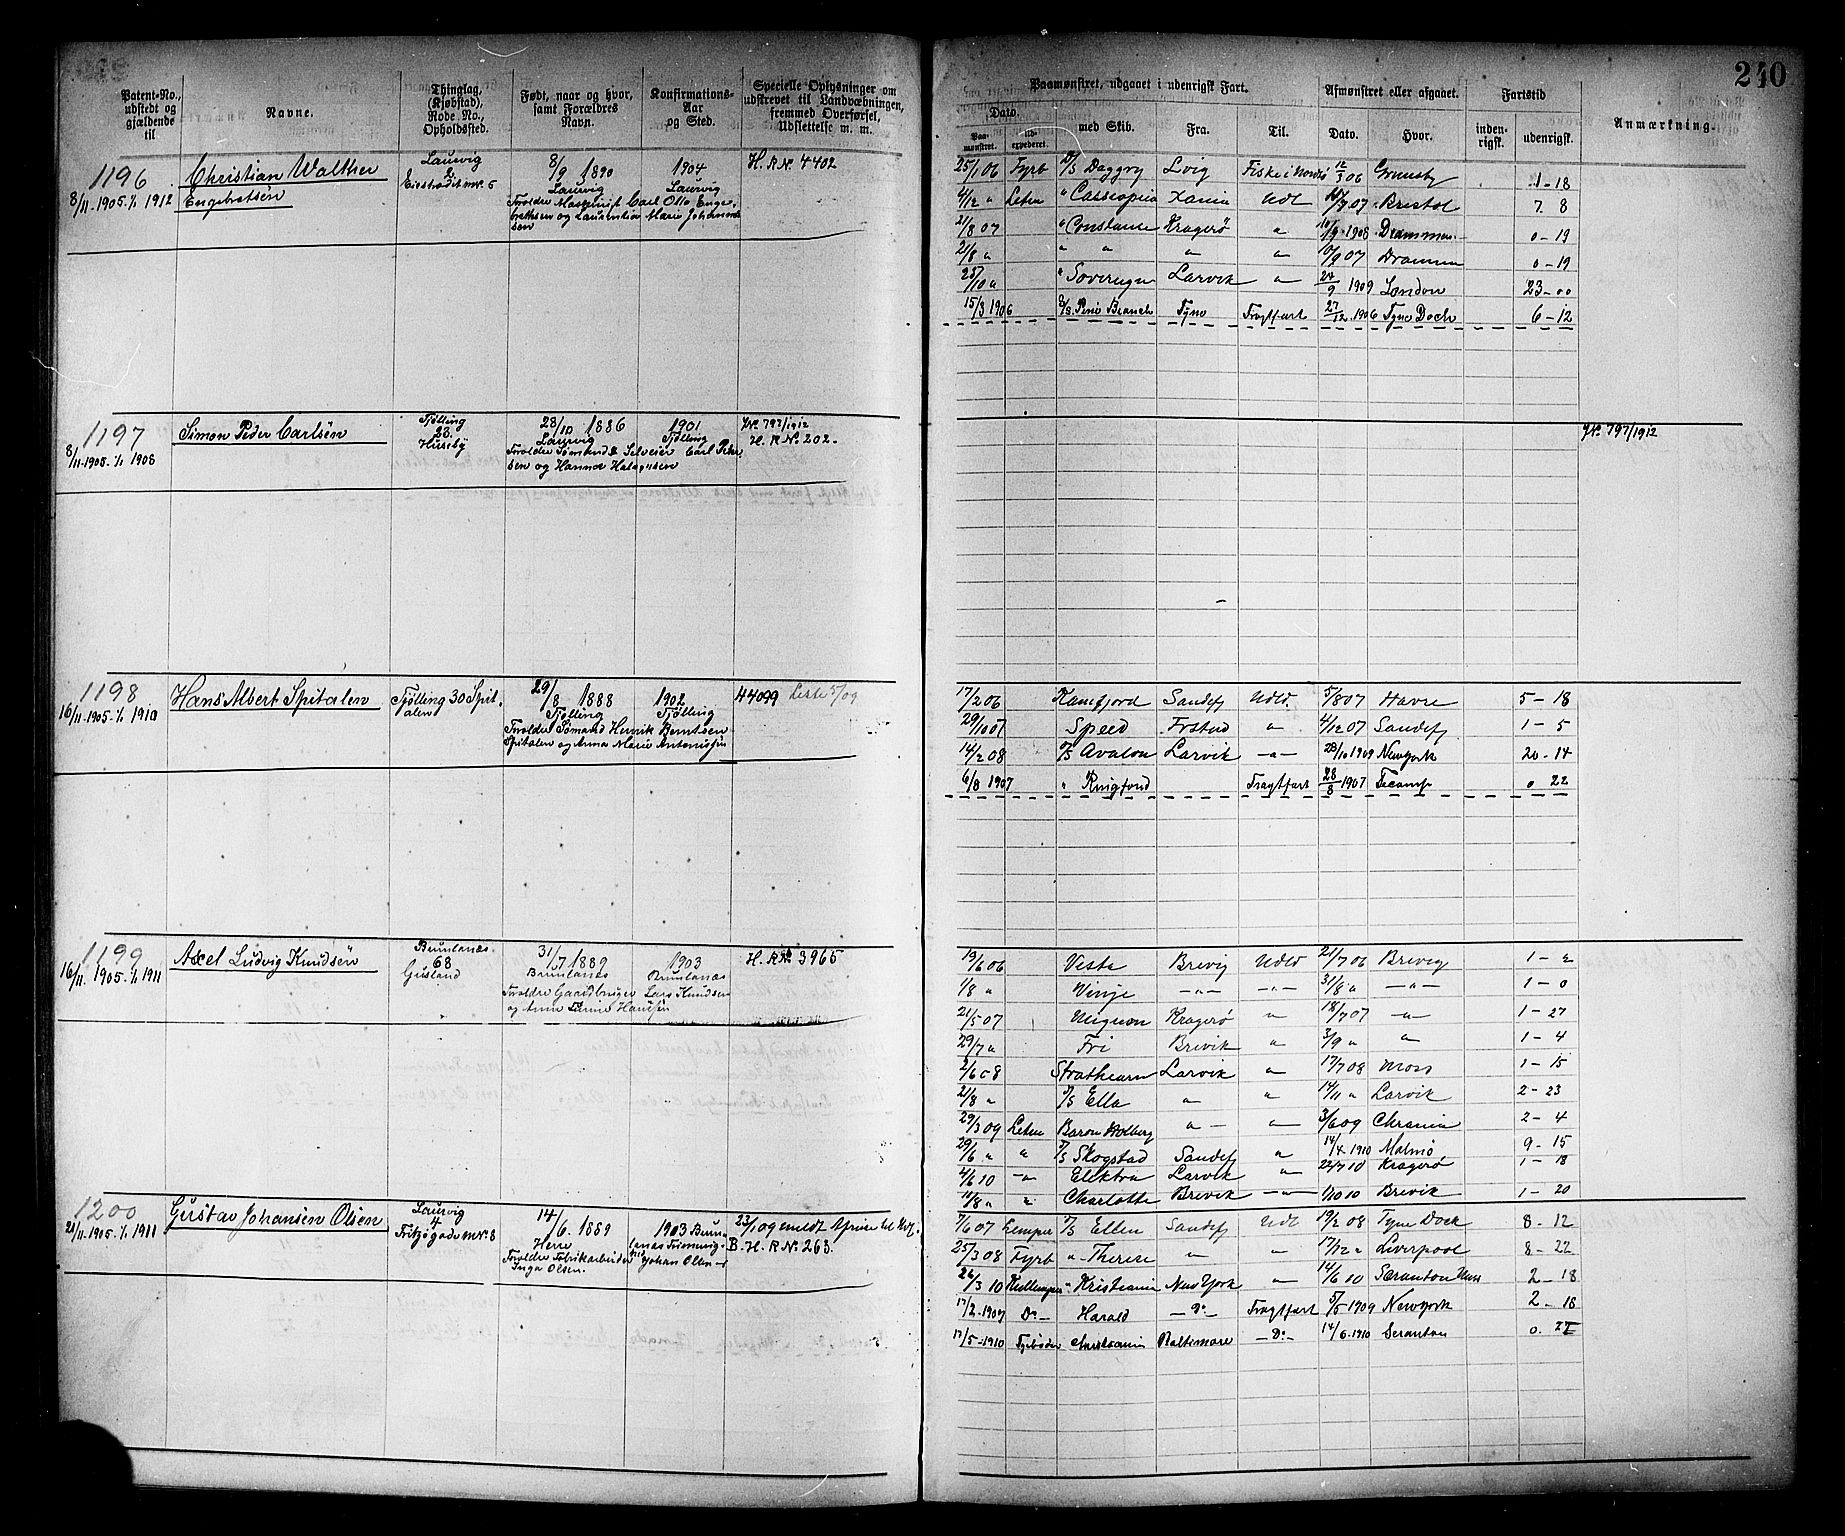 240
Patent-No., udstedt og gjældende til
Navne.
Thinglag, (Kjøbstad), Rode No., Opholdssted.
Født, naar og hvor, samt Forældres Navn.
Konfirmations-Aar og Sted.
Specielle Oplysninger om udstrevet til Landvæbningen, fremmed Overførsel, Udslettelse m. m.
Paamønstret, udgaaet i udenrigsk Fart.
Dato.
Paamønstret.
med Skib.
Fra.
Til.
Afmønstret eller afgaaet.
Dato.
Hvor.
Fartstid
indenrigsk.
udenrigsk.
Anmærkning.
1196
8/11-1905-1/1 1912
Christian Walther
Engebretsen
Laurvig
2
8/9 1890
Laurvig
1904
Laurvig
H.R.No. 4402
Forældre Maskinist Carl Otto Enge-
brethsen og Laurentia Marie Johannes-
sen
25/1 06 Fyrb D/S Daggry Lvig Fiske i Nords 12/3 06 Grimsby 1-18
4/12 " Letm " Cassiopeia Xania Udl 14/7 07 Bristol 7. 8
21/8 07 " Constance Kragerø " 10/9-1908 Drammen 0-19
21/8 " " " " " 10/9 07 Drammen 0-19
25/10 " " Sovereign Larvik " 24/9 1909 London 23-00
15/3 1906 S/S Pine Branch Tyne Fragtfart 27/12-1906 Tyne Dock 6-12
1197
8/11-1905-1/1 1908
Simon Peder Carlsen
Tjølling
28
Huseby
28/10 1886
Laurvig
1901
Tjølling
No 797/1912
H.R.No. 202.
sen og Hanna Halagusen
No 797/1912
1198
16/11-1905-1/1 1910
Hans Albert Spitalen
Tjølling 30 Spit-
alen
29/8 1888
Tjølling
1902
Tjølling
44099 Liste 5/09
Forældre Sømand Henrik Berntsen
Spitalen og Anna Marie Antonisen
17/2 06 Ranfjord Sandefj Udld. 5/8 07 Havre 5-18
29/10 07 Speed Frstad " 4/12 07 Sandefj 1-5
14/2 08 D/S Avalon Larvik -"- 28/10 1909 Newyork 20-14
6/8 1907 " Ringfond Fragtfart 28/8 1907 Fecamp 0 22
1199
16/11-1905-1/1 1911
Axel Ludvig Knudsen
Brunlanæs
68
Gusland
31/7 1889
Brunlanæs
1903
Brunlanæs
H.R.No. 3965
Forældre Gaardbruger Lars Knudsen
og Anne Hansen
19/6 06 Vesta Brevig Udld 21/7 06 Brevig 1-2
1/8 " Vinje -"- -"- 31/8 " -"- 1-0
21/5 07 Mignon Kragerø " 18/7 07 -"- 1-27
29/7 " Fri Brevik " 3/9 " " 1-4
2/6 08 Strathearn Larvik " 17/7 08 Moss 1-15
21/8 " D/S Ella " " 14/11 " Larvik 2-23
29/3 09 Letm Baron Holberg " " 3/6 09 Chrania 2-4
29/6 " " D/S Skogstad Sandefj " 14/4 1910 Malmø 9-15
4/6 10 -" Elektra Larvik " 22/7 10 Kragerø 1-18
14/8 " " Charlotte Brevik -"- 1/10 10 Brevik 1-20
1200
21/11-1905-1/1 1911
Gustav Johansen Olsen
Laurvig
4
Fritzøgade No. 8
14/6. 1889
Herre
1903 Brun-
lanæs
23/1 09 meldt
B.H.R.No. 263.
Forældre Fabrikarbeider Johan Olsen
Inga Olsen.
7/6 07 Lemper D/S Ellen Sandefj Udl 19/2 08 Tyne Dock 8-12
25/3 08 Fyrb " Therese " " 17/12 " Liverpool 8-22
26/3 10 " Kristiania New York " 14/6 10 Scranton Miss 2-18
17/2-1907 Do- Harald -Do- Fragtfart 5/5 1909 Newyork 2-18
17/5-1910 Fyrbøder Christiania Baltimore -Do- 14/6-1910 Scranton